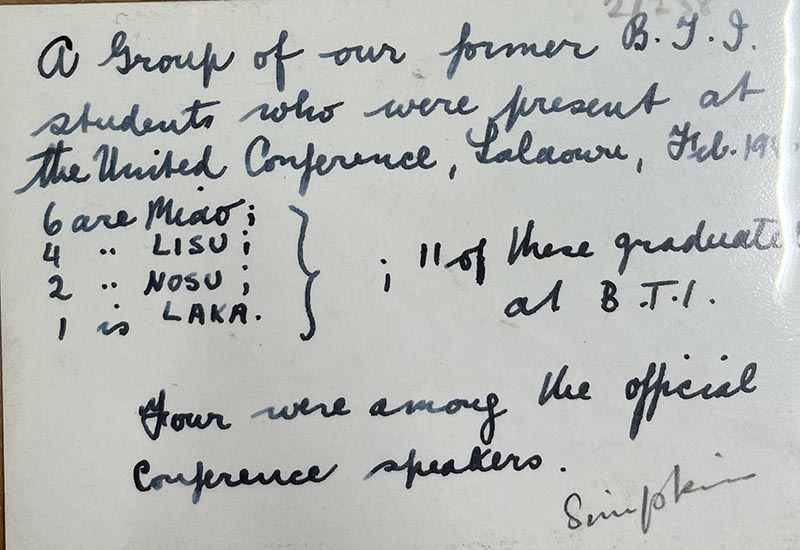 A Group of our former B.T.I.
students who were present at
the United Conference, Salaowu, Feb. 19
6 are Miao;
4 " LISU;
2 " NOSU;
1 is LAKA.
; 11 of these graduate
at B.T.I.
Four were among the official
Conference speakers.
Simpkin